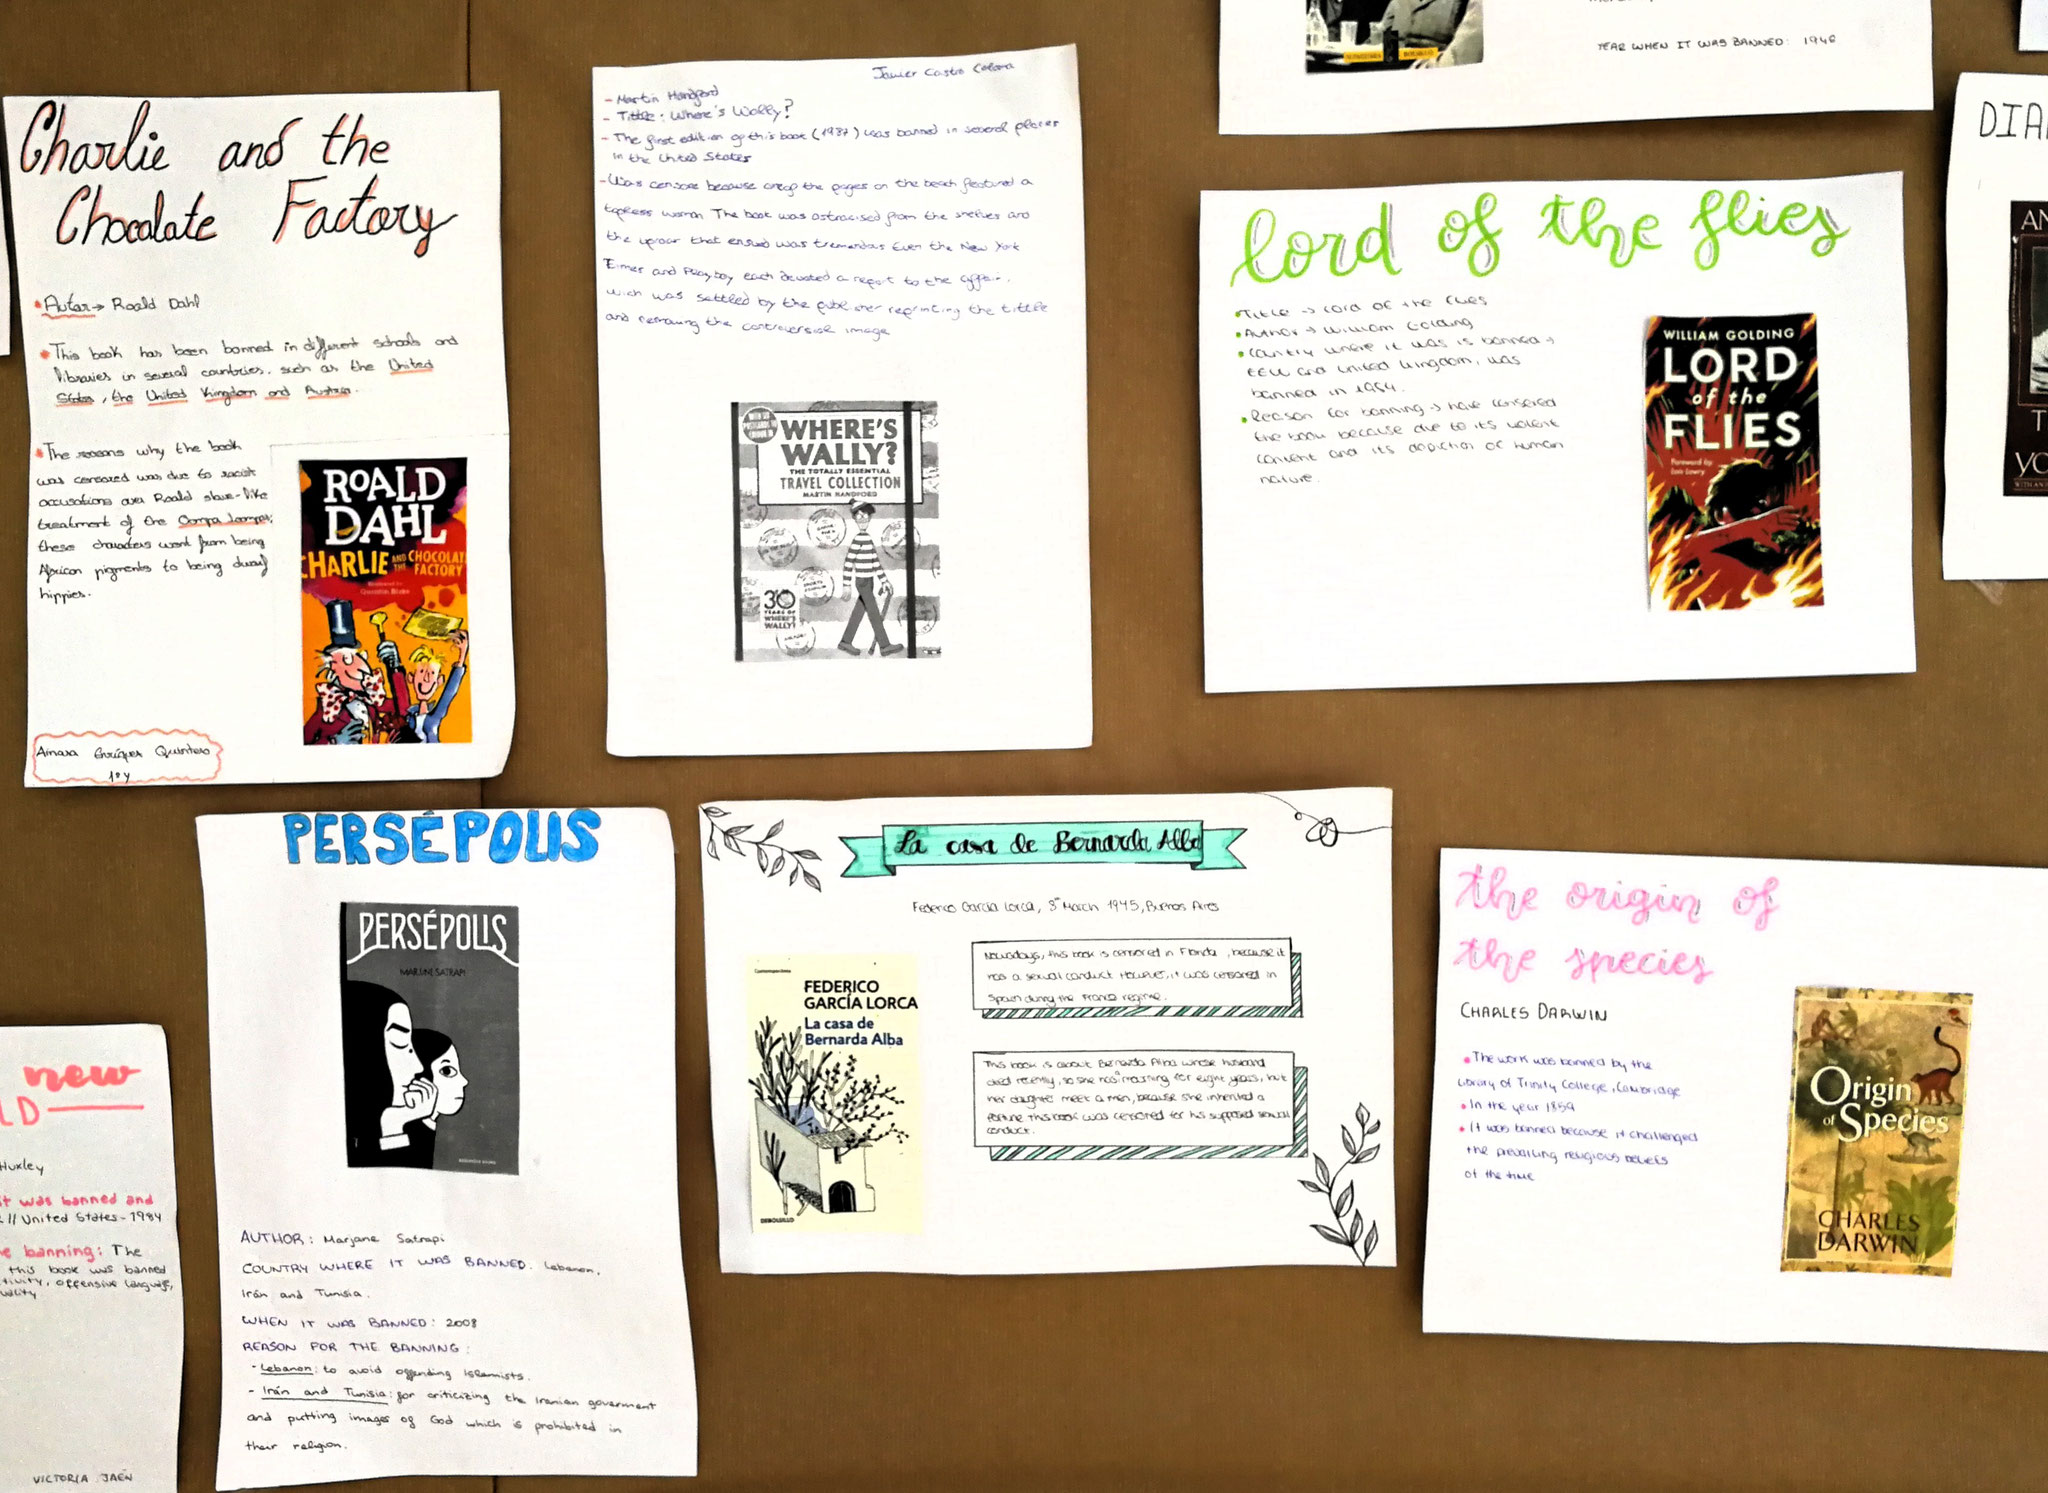 Charlie and the
Chocolate Factory
Autor → Roald Dahl
This book has been banned in different schools and
libraries in several countries. such as the United
States, the United Kingdom and Austria.
The reasons why the book
was censored was due to racist
accusations over Roald slave-like
treatment of the Oompa Loompas,
these characters went from being
African pigments to being dwarf
hippies.
ROALD
DAHL
CHARLIE AND THE CHOCOLATE
FACTORY
Illustrated by
Quentin Blake
Ainara Enríquez Quintero
1º Y
Javier Castro Coloma
- Martin Handford
- Tittle: Where's Wally?
- The first edition of this book (1987) was banned in several places
in the United States
- Was censore because one of the pages on the beach featured a
topless woman The book was ostracised from the shelves and
the uproar that ensued was tremendous Even the New York
Times and Playboy each devoted a report to the affair.
wich was settled by the publisher reprinting the tittle
and removing the controversial image
WHERE'S
WALLY?
THE TOTALLY ESSENTIAL
TRAVEL COLLECTION
MARTIN HANDFORD
30
YEARS OF
WHERE'S
WALLY?
YEAR WHEN IT WAS BANNED: 1946
lord of the flies
Title → Lord of the flies
Author → William Golding
Country where it was is banned →
EEUU and United Kingdom, was
banned in 1954.
Reason for banning → have censored
the book because due to its violent
content and its depiction of human
nature.
WILLIAM GOLDING
LORD
of the
FLIES
Foreword by
Lois Lowry
DIA
AN
T
YO
PERSÉPOLIS
PERSÉPOLIS
MARJANE SATRAPI
AUTHOR: Marjane Satrapi
COUNTRY WHERE IT WAS BANNED. Lebanon,
Irán and Tunisia.
WHEN IT WAS BANNED: 2008
REASON FOR THE BANNING:
- Lebanon: to avoid offending Islamists.
- Irán and Tunisia: for criticizing the Iranian goverment
and putting images of God which is prohibited in
their religion.
La casa de Bernarda Alba
Federico García Lorca, 8th March 1945, Buenos Aires
Nowadays, this book is censored in Florida, because it
has a sexual conduct However, it was censored in
Spain during the Franco regime.
This book is about Bernarda Alba whose husband
died recently, so she has mourning for eight years, but
her daughter meet a men, because she inherited a
fortune this book was censored for his supposed sexual
conduct.
Contemporánea
FEDERICO
GARCÍA LORCA
La casa de
Bernarda Alba
DEBOLSILLO
the origin of
the species
CHARLES DARWIN
The work was banned by the
library of Trinity College, Cambridge
In the year 1859
It was banned because it challenged
the prevailing religious beliefs
of the time
The
Origin
of Species
CHARLES
DARWIN
new
LD
Huxley
it was banned and
// United States - 1984
e banning: The
this book was banned
tivity, offensive language,
uality
VICTORIA JAÉN